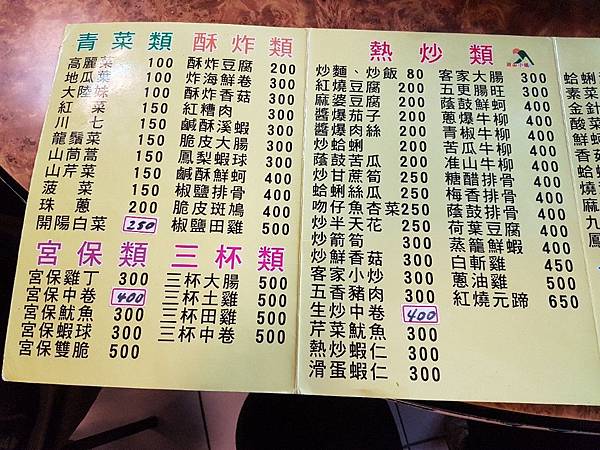 青菜類
高麗菜 100
地瓜葉 100
大陸妹 100
紅菜 150
川七 150
龍鬚菜 150
山茼蒿 150
山芹菜 150
菠菜 150
珠蔥 200
開陽白菜 250
酥炸類
酥炸豆腐 200
炸海鮮卷 300
酥炸香菇 200
紅糟肉 200
鹹酥溪蝦 300
脆皮大腸 300
鳳梨蝦球 300
鹹酥鮮蚵 400
椒鹽排骨 400
脆皮斑鳩 400
椒鹽田雞 500
宮保類
宮保雞丁 300
宮保中卷 400
宮保魷魚 300
宮保蝦球 300
宮保雙脆 500
三杯類
三杯大腸 500
三杯土雞 500
三杯田雞 500
三杯中卷 500
熱炒類
炒麵、炒飯 80
紅燒豆腐 200
麻婆豆腐 200
醬爆茄子 200
醬爆肉絲 200
炒蛤蜊 200
蔭鼓苦瓜 200
炒甘蔗筍 250
蛤蜊絲瓜 250
吻仔魚杏菜 250
炒半天花 250
炒箭筍 300
炒鮮香菇 300
客家小炒 300
五香豬肉 300
生炒中卷 400
芹菜魷魚 300
熱炒蝦仁 300
滑蛋蝦仁 300
客家大腸 300
五更腸旺 300
蔭鼓鮮蚵 400
蔥爆牛柳 400
青椒牛柳 400
苦瓜牛柳 400
准山牛柳 400
糖醋排骨 400
梅香排骨 400
蔭鼓排骨 400
荷葉豆腐 400
蒸籠鮮蝦 400
白斬雞 450
蔥油雞 500
紅燒元蹄 650
蛤蜊
素菜
金針
酸菜
香菇
麻
九
鳳